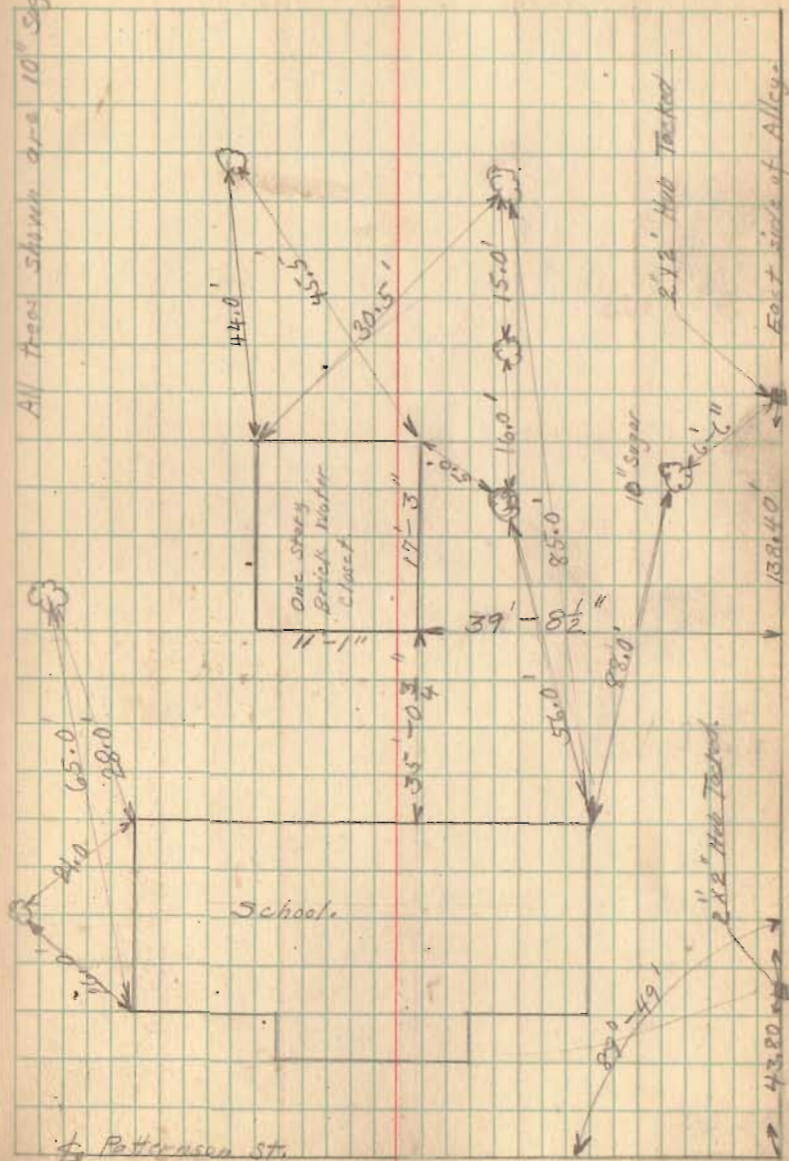 All trees shown are 10" Sug
44.0'
45.5'
30.5'
15.0'
16.0'
2"x2' Hub Tacked
East side of Alley.
One Story
Brick Water
Closet.
17'-3"
10" Sugar
6'-6"
85.0'
138.40'
39'-8½"
11'-1"
65.0'
28.0'
35'-0¾"
56.0'
88.0'
School.
2"x2" Hub Tacked.
89°-49'
43.80
℄ Patterson St.